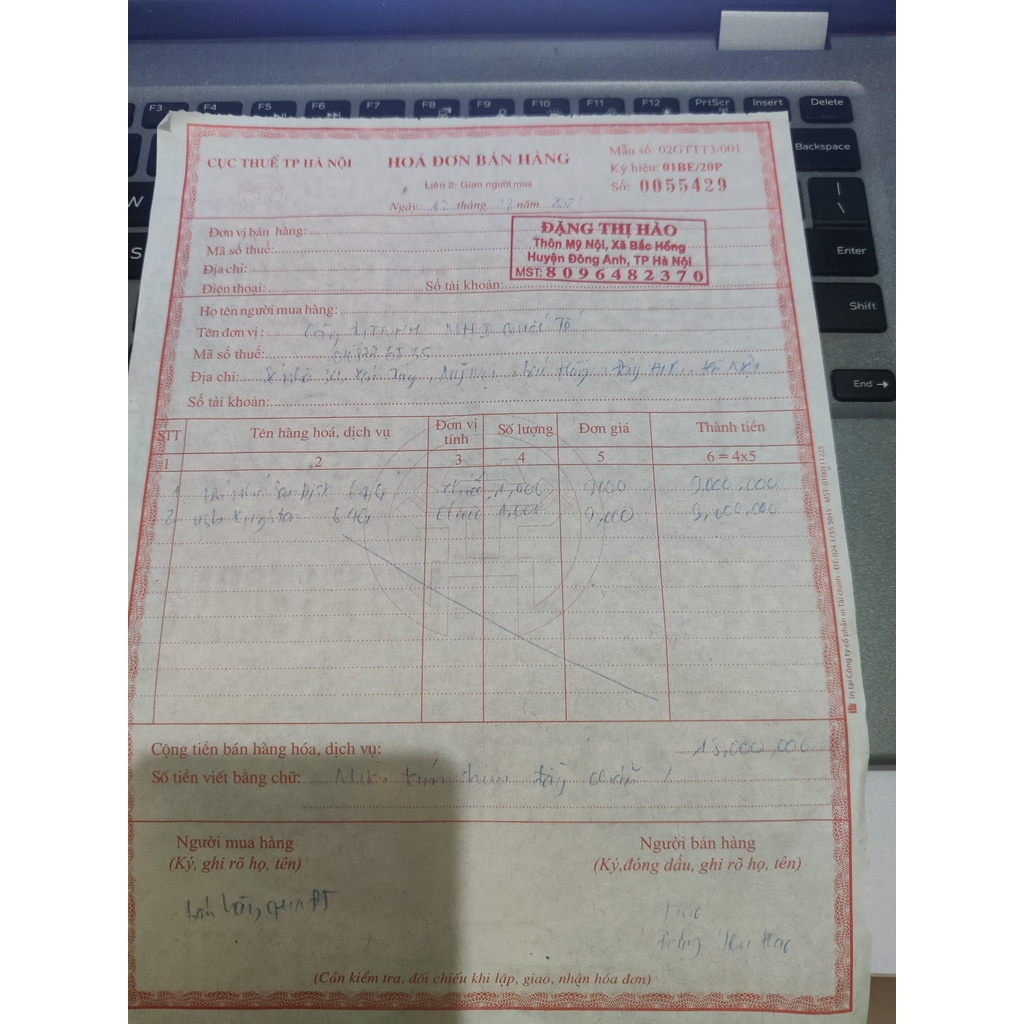 F3 F4 F5 F6 F7 F8 F9 F10 F11 F12 PrtScr Insert Delete
Backspace
W
S
Enter
Shift
End
CỤC THUẾ TP HÀ NỘI
HOÁ ĐƠN BÁN HÀNG
Liên 2: Giao người mua
Mẫu số: 02GTTT3/001
Ký hiệu: 01BE/20P
Số: 0055429
Ngày 12 tháng 12 năm
Đơn vị bán hàng:
Mã số thuế:
Địa chỉ:
Điện thoại: Số tài khoản:
ĐẶNG THỊ HÀO
Thôn Mỹ Nội, Xã Bắc Hồng
Huyện Đông Anh, TP Hà Nội
MST: 8096482370
Họ tên người mua hàng:
Tên đơn vị: Công ty TNHH MHI Quốc Tế
Mã số thuế:
Địa chỉ: Hà Nội
Số tài khoản:
STT Tên hàng hoá, dịch vụ Đơn vị tính Số lượng Đơn giá Thành tiền
1 2 3 4 5 6 = 4x5
1 64G chiếc 1,000 9,000 9,000,000
2 64G chiếc 1,000 9,000 9,000,000
Cộng tiền bán hàng hóa, dịch vụ: 18,000,000
Số tiền viết bằng chữ: Mười tám triệu đồng chẵn /
Người mua hàng
(Ký, ghi rõ họ, tên)
bán hàng qua ĐT
Người bán hàng
(Ký,đóng dấu, ghi rõ họ, tên)
(Cần kiểm tra, đối chiếu khi lập, giao, nhận hóa đơn)
In tại Công ty cổ phần in Tài chính - ĐT: 024.3755 5045 - MST: 0100111225